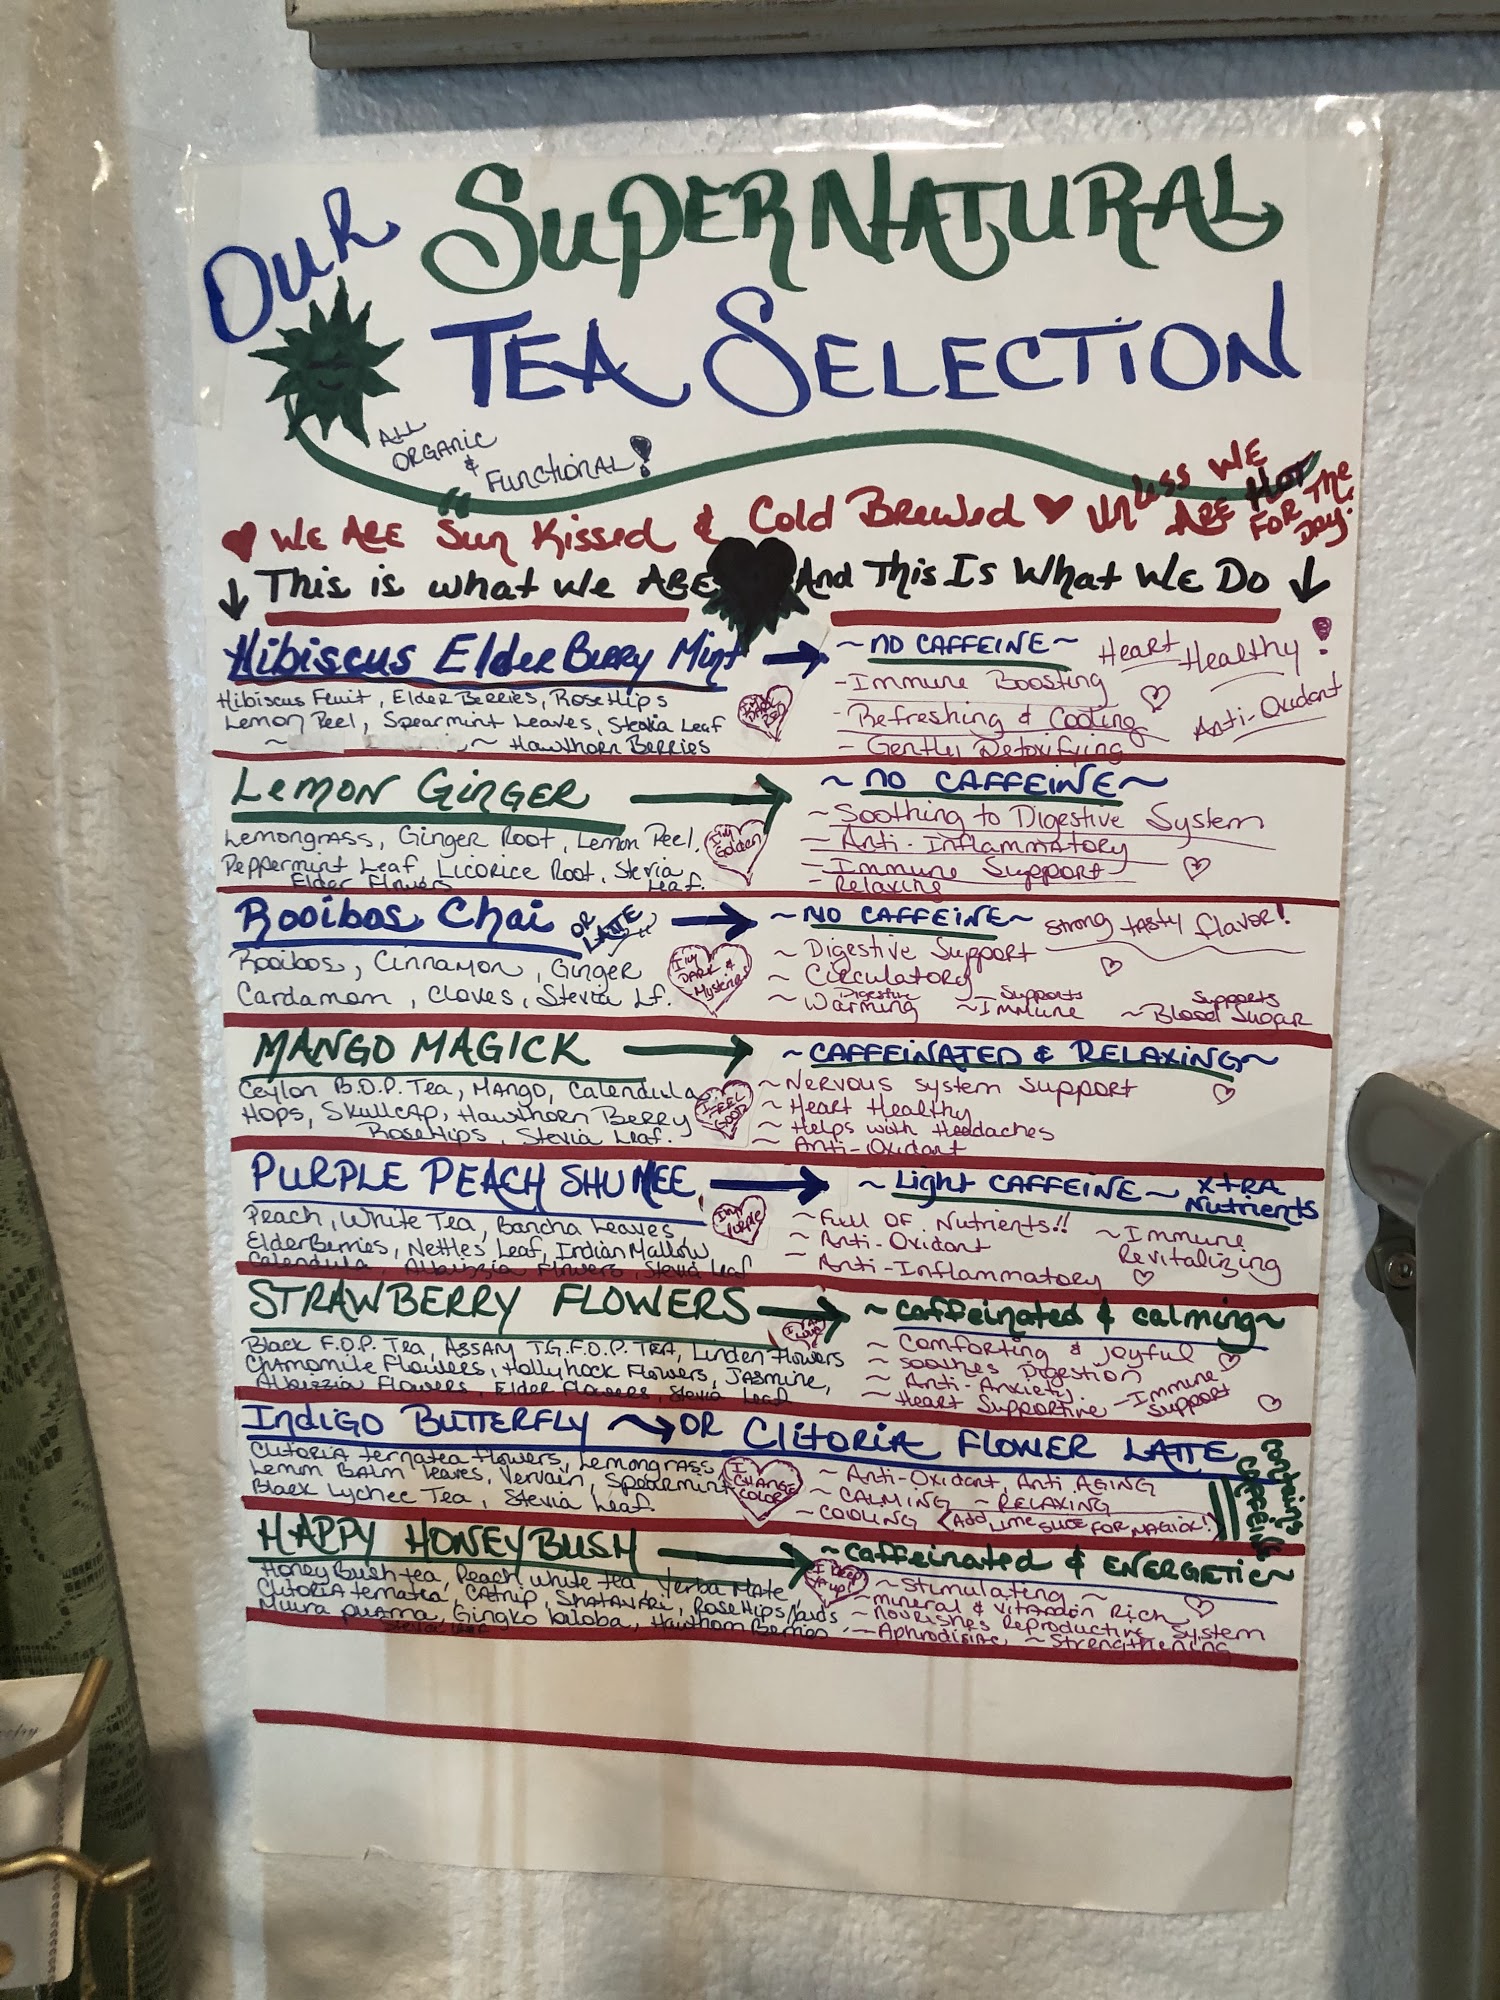 OUR SUPERNATURAL
TEA SELECTION
ALL
ORGANIC
&
FUNCTIONAL!
♥ WE ARE "Sun Kissed & Cold Brewed ♥ UnLess WE
ARE HOT
FOR The
DAY.
↓ This is what we ARE And This Is What We Do ↓
Hibiscus ElderBerry Mint →
Hibiscus Fruit, ElderBerries, RoseHips
Lemon Peel, Spearmint Leaves, Stevia Leaf
~ Hawthorn Berries
~ NO CAFFEINE ~
Heart Healthy!
- Immune Boosting
- Refreshing & Cooling
- Gently Detoxifying
Anti-Oxidant
Lemon Ginger →
Lemongrass, Ginger Root, Lemon Peel,
Peppermint Leaf, Licorice Root, Stevia
Elder Flowers Leaf.
I'm
Golden
~ NO CAFFEINE ~
~ Soothing to Digestive System
- Anti-Inflammatory
- Immune Support
- Relaxing
Rooibos Chai OR
LATTE →
Rooibos, Cinnamon, Ginger
Cardamom, Cloves, Stevia Lf.
I'm
DARK &
~ NO CAFFEINE ~ Strong tasty flavor!
~ Digestive Support
~ Circulatory
~ Digestive Warming
~ Supports Immune
~ Supports Blood Sugar
MANGO MAGICK →
Ceylon B.O.P. Tea, Mango, Calendula
Hops, Skullcap, Hawthorn Berry
RoseHips, Stevia Leaf.
I FEEL
GOOD
~ CAFFEINATED & RELAXING ~
~ Nervous System Support
~ Heart Healthy
~ Helps with Headaches
~ Anti-Oxidant
PURPLE PEACH SHUMEE →
Peach, White Tea, Bancha Leaves,
ElderBerries, Nettles Leaf, Indian Mallow,
Calendula, Albizzia Flowers, Stevia Leaf
I'm
Purple
~ Light CAFFEINE ~ XtRA
Nutrients
~ Full OF Nutrients!!
~ Anti-Oxidant
~ Anti-Inflammatory
~ Immune
Revitalizing
STRAWBERRY FLOWERS →
Black F.O.P. Tea, ASSAM T.G.F.O.P. TEA, Linden flowers
Chamomile Flowers, Hollyhock Flowers, Jasmine,
Albizzia Flowers, Elder Flowers, Stevia Leaf
~ Caffeinated & calming ~
~ Comforting & Joyful
~ Soothes Digestion
~ Anti-Anxiety.
~ Heart Supportive
~ Immune
Support
Indigo BUTTERFLY → OR Clitoria FLOWER LATTE
Clitoria ternatea flowers, Lemongrass,
Lemon Balm Leaves, Vervain, Spearmint
Black Lychee Tea, Stevia Leaf.
I
CHANGE
COLOR
~ Anti-Oxidant, Anti AGING
~ CALMING ~ RELAXING
~ COOLING (Add LIME SLICE FOR MAGICK!)
CAFFEINE
HAPPY HONEYBUSH →
HoneyBush tea, Peach, white tea, Yerba Mate,
Clitoria ternatea, Catnip, Shatavari, RoseHips,
Muira puama, Gingko biloba, Hawthorn Berries
Stevia Leaf
I keep
~ Caffeinated & ENERGETIC ~
~ Stimulating ~
~ mineral & vitamin Rich
~ Nourishes Reproductive System
~ Aphrodisiac, ~ Strengthening